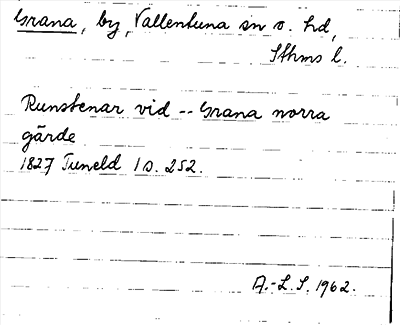 Grana, by, Vallentuna sn o. hd,
Sthms l.
Runstenar vid -- Grana norra
gärde
1827 Tuneld 1 s. 252.
A.-L.S. 1962.